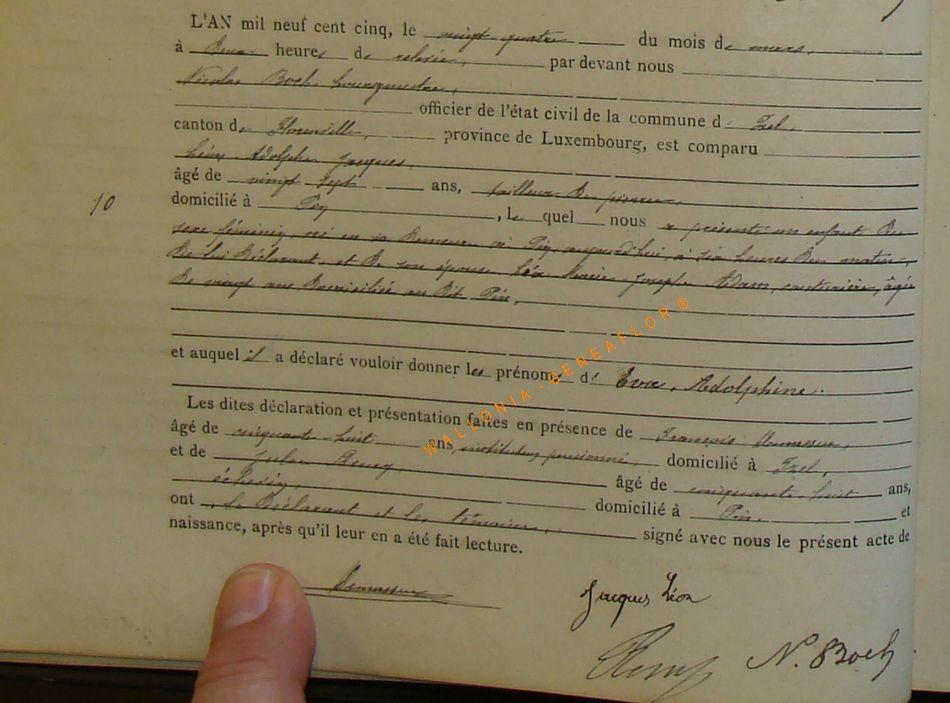 L'AN mil neuf cent cinq, le vingt quatre du mois de mars,
à heures de relevée, par devant nous
Nicolas Boch, bourgmestre,
officier de l'état civil de la commune d' Izel,
canton de Florenville, province de Luxembourg, est comparu
Léon Adolphe Jacques,
âgé de vingt sept ans, tailleur de pierres,
10
domicilié à Pin , le quel nous a présenté un enfant du
sexe féminin, né en sa demeure à Pin, aujourd'hui, à six heures du matin,
de lui déclarant, et de son épouse Léa Marie Joseph Adam, couturière, âgée
de vingt ans domiciliée au dit Pin,
et auquel il a déclaré vouloir donner les prénoms d' Eva, Adolphine.
Les dites déclaration et présentation faites en présence de François
âgé de cinquante huit ans, instituteur pensionné, domicilié à Izel,
et de Jules Remy, âgé de cinquante huit ans,
échevin, domicilié à Pin, et
ont le déclarant et les témoins, signé avec nous le présent acte de
naissance, après qu'il leur en a été fait lecture.
Jacques Léon
Remy N. Boch
WALLONIA-GENEAFLOR®